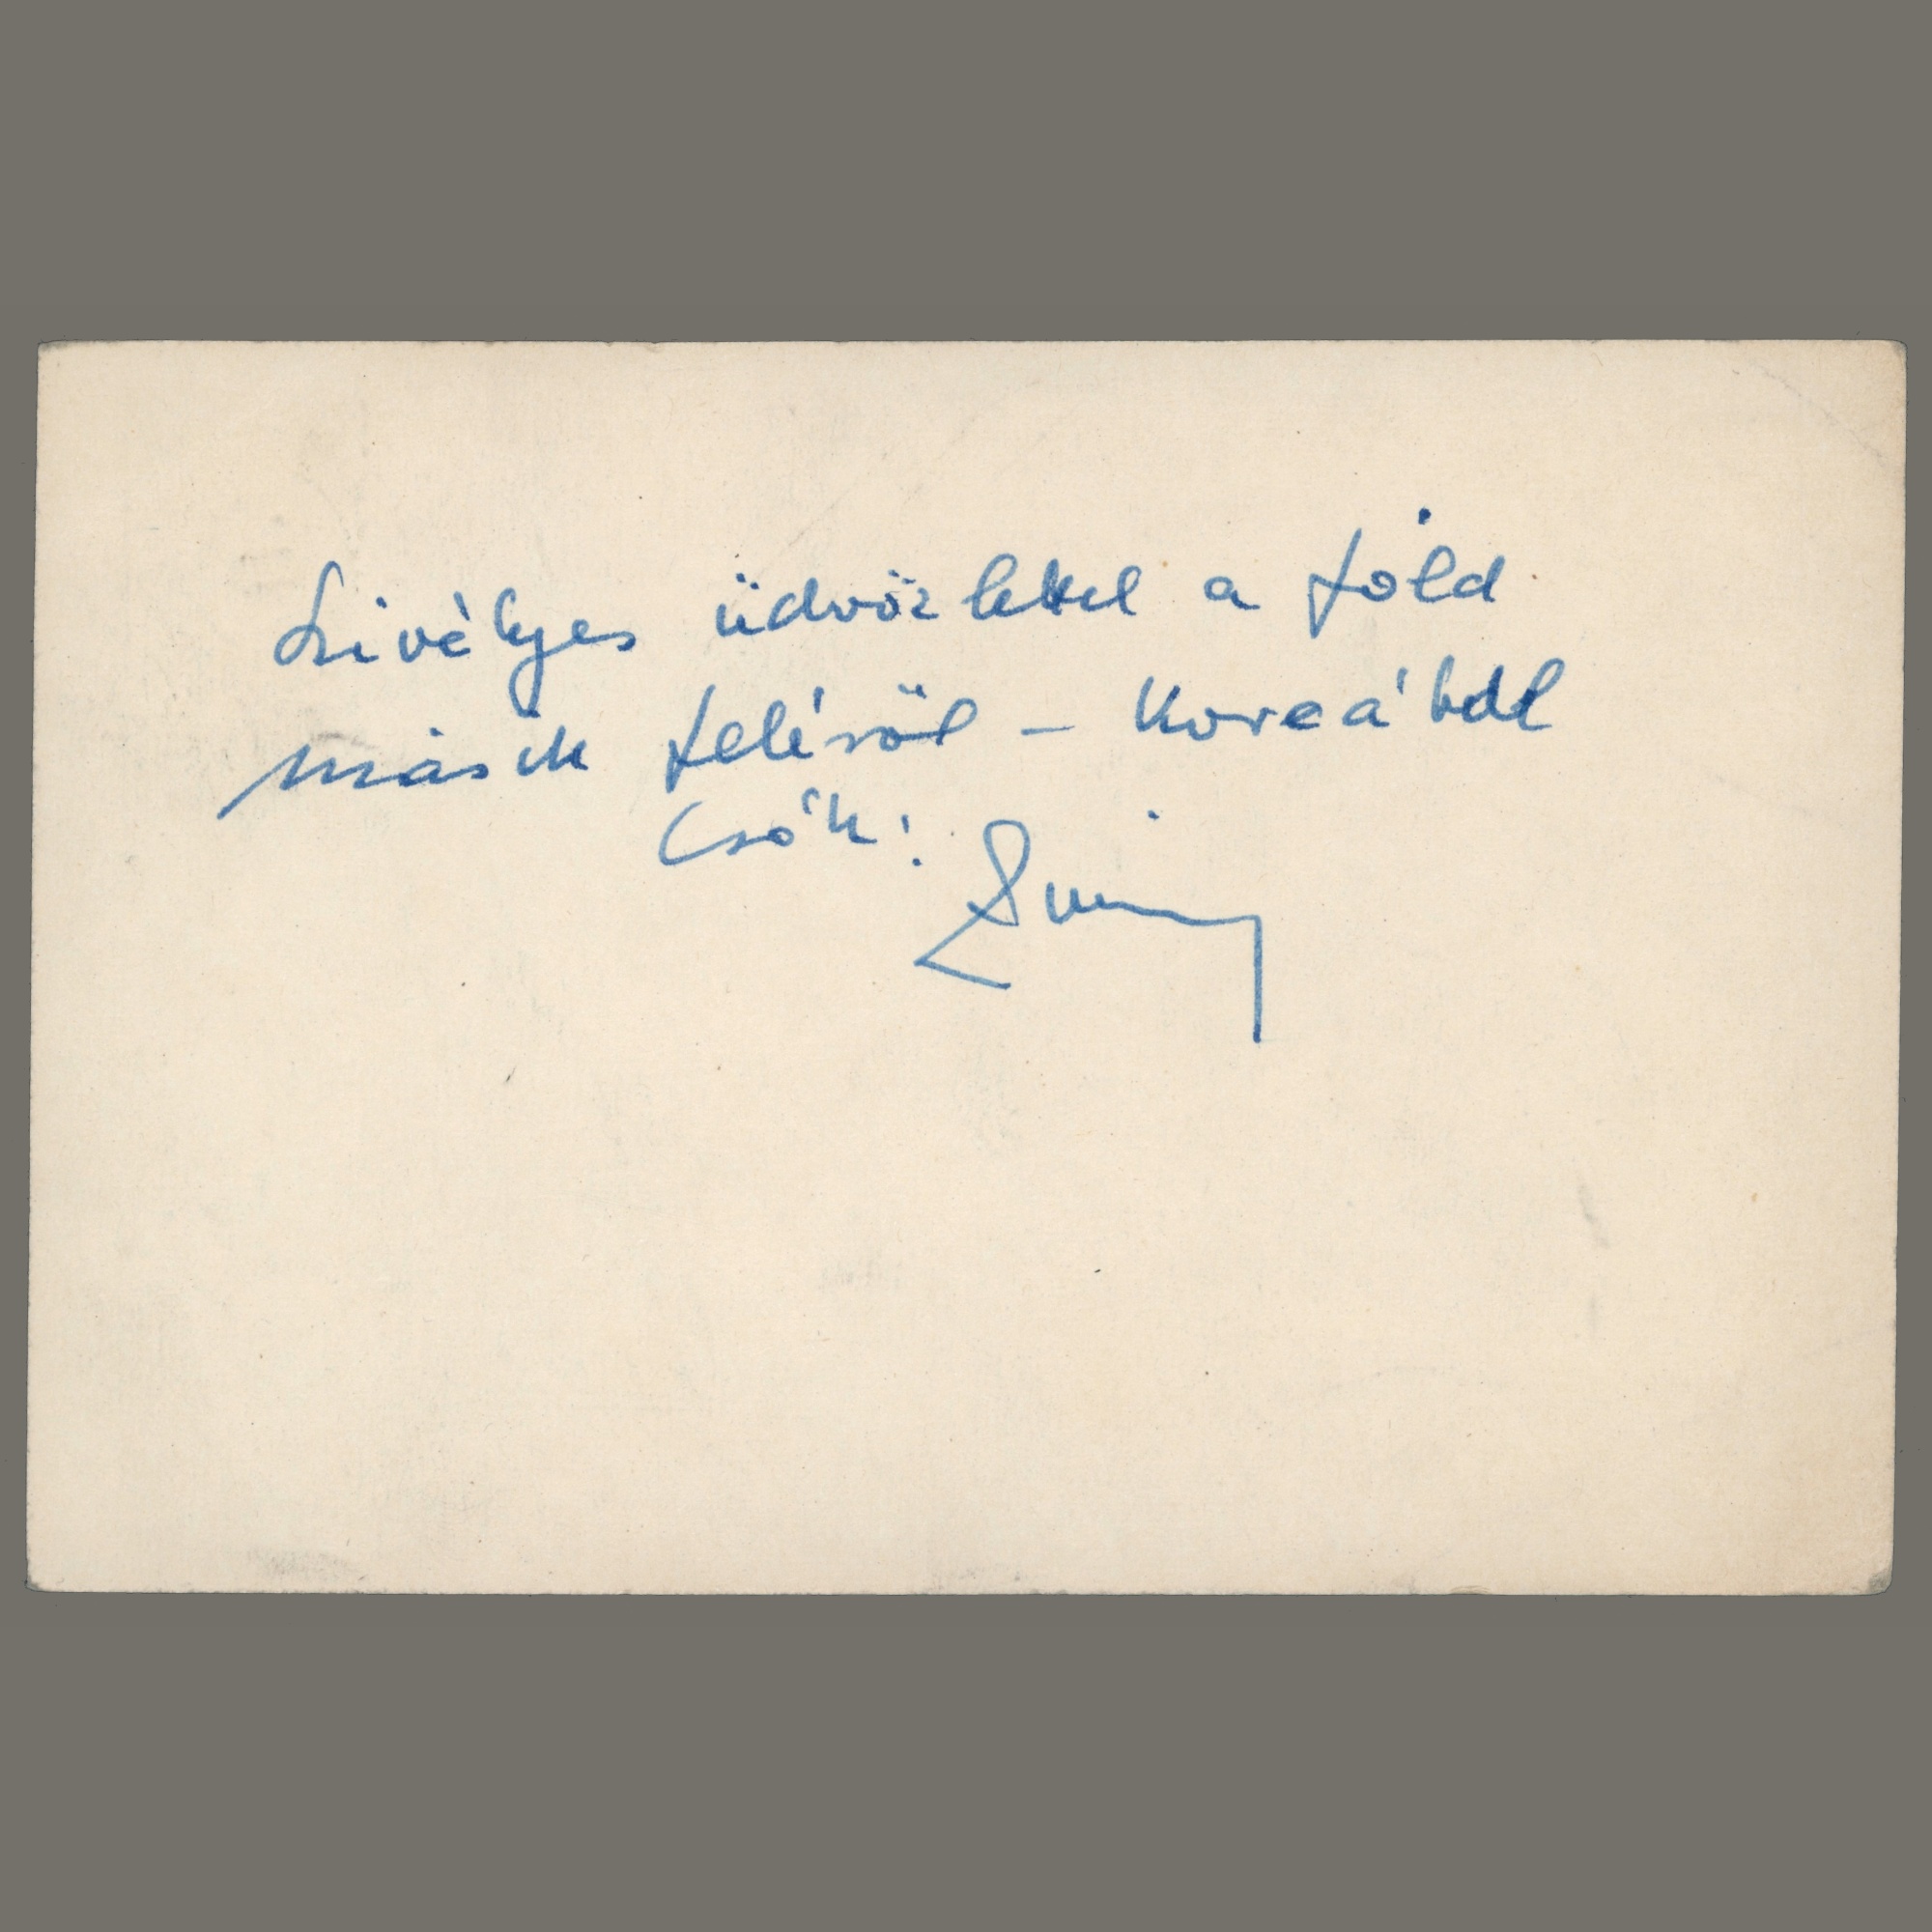 Szivélyes üdvözlettel a föld
másik feléről – Koreából
Csók: